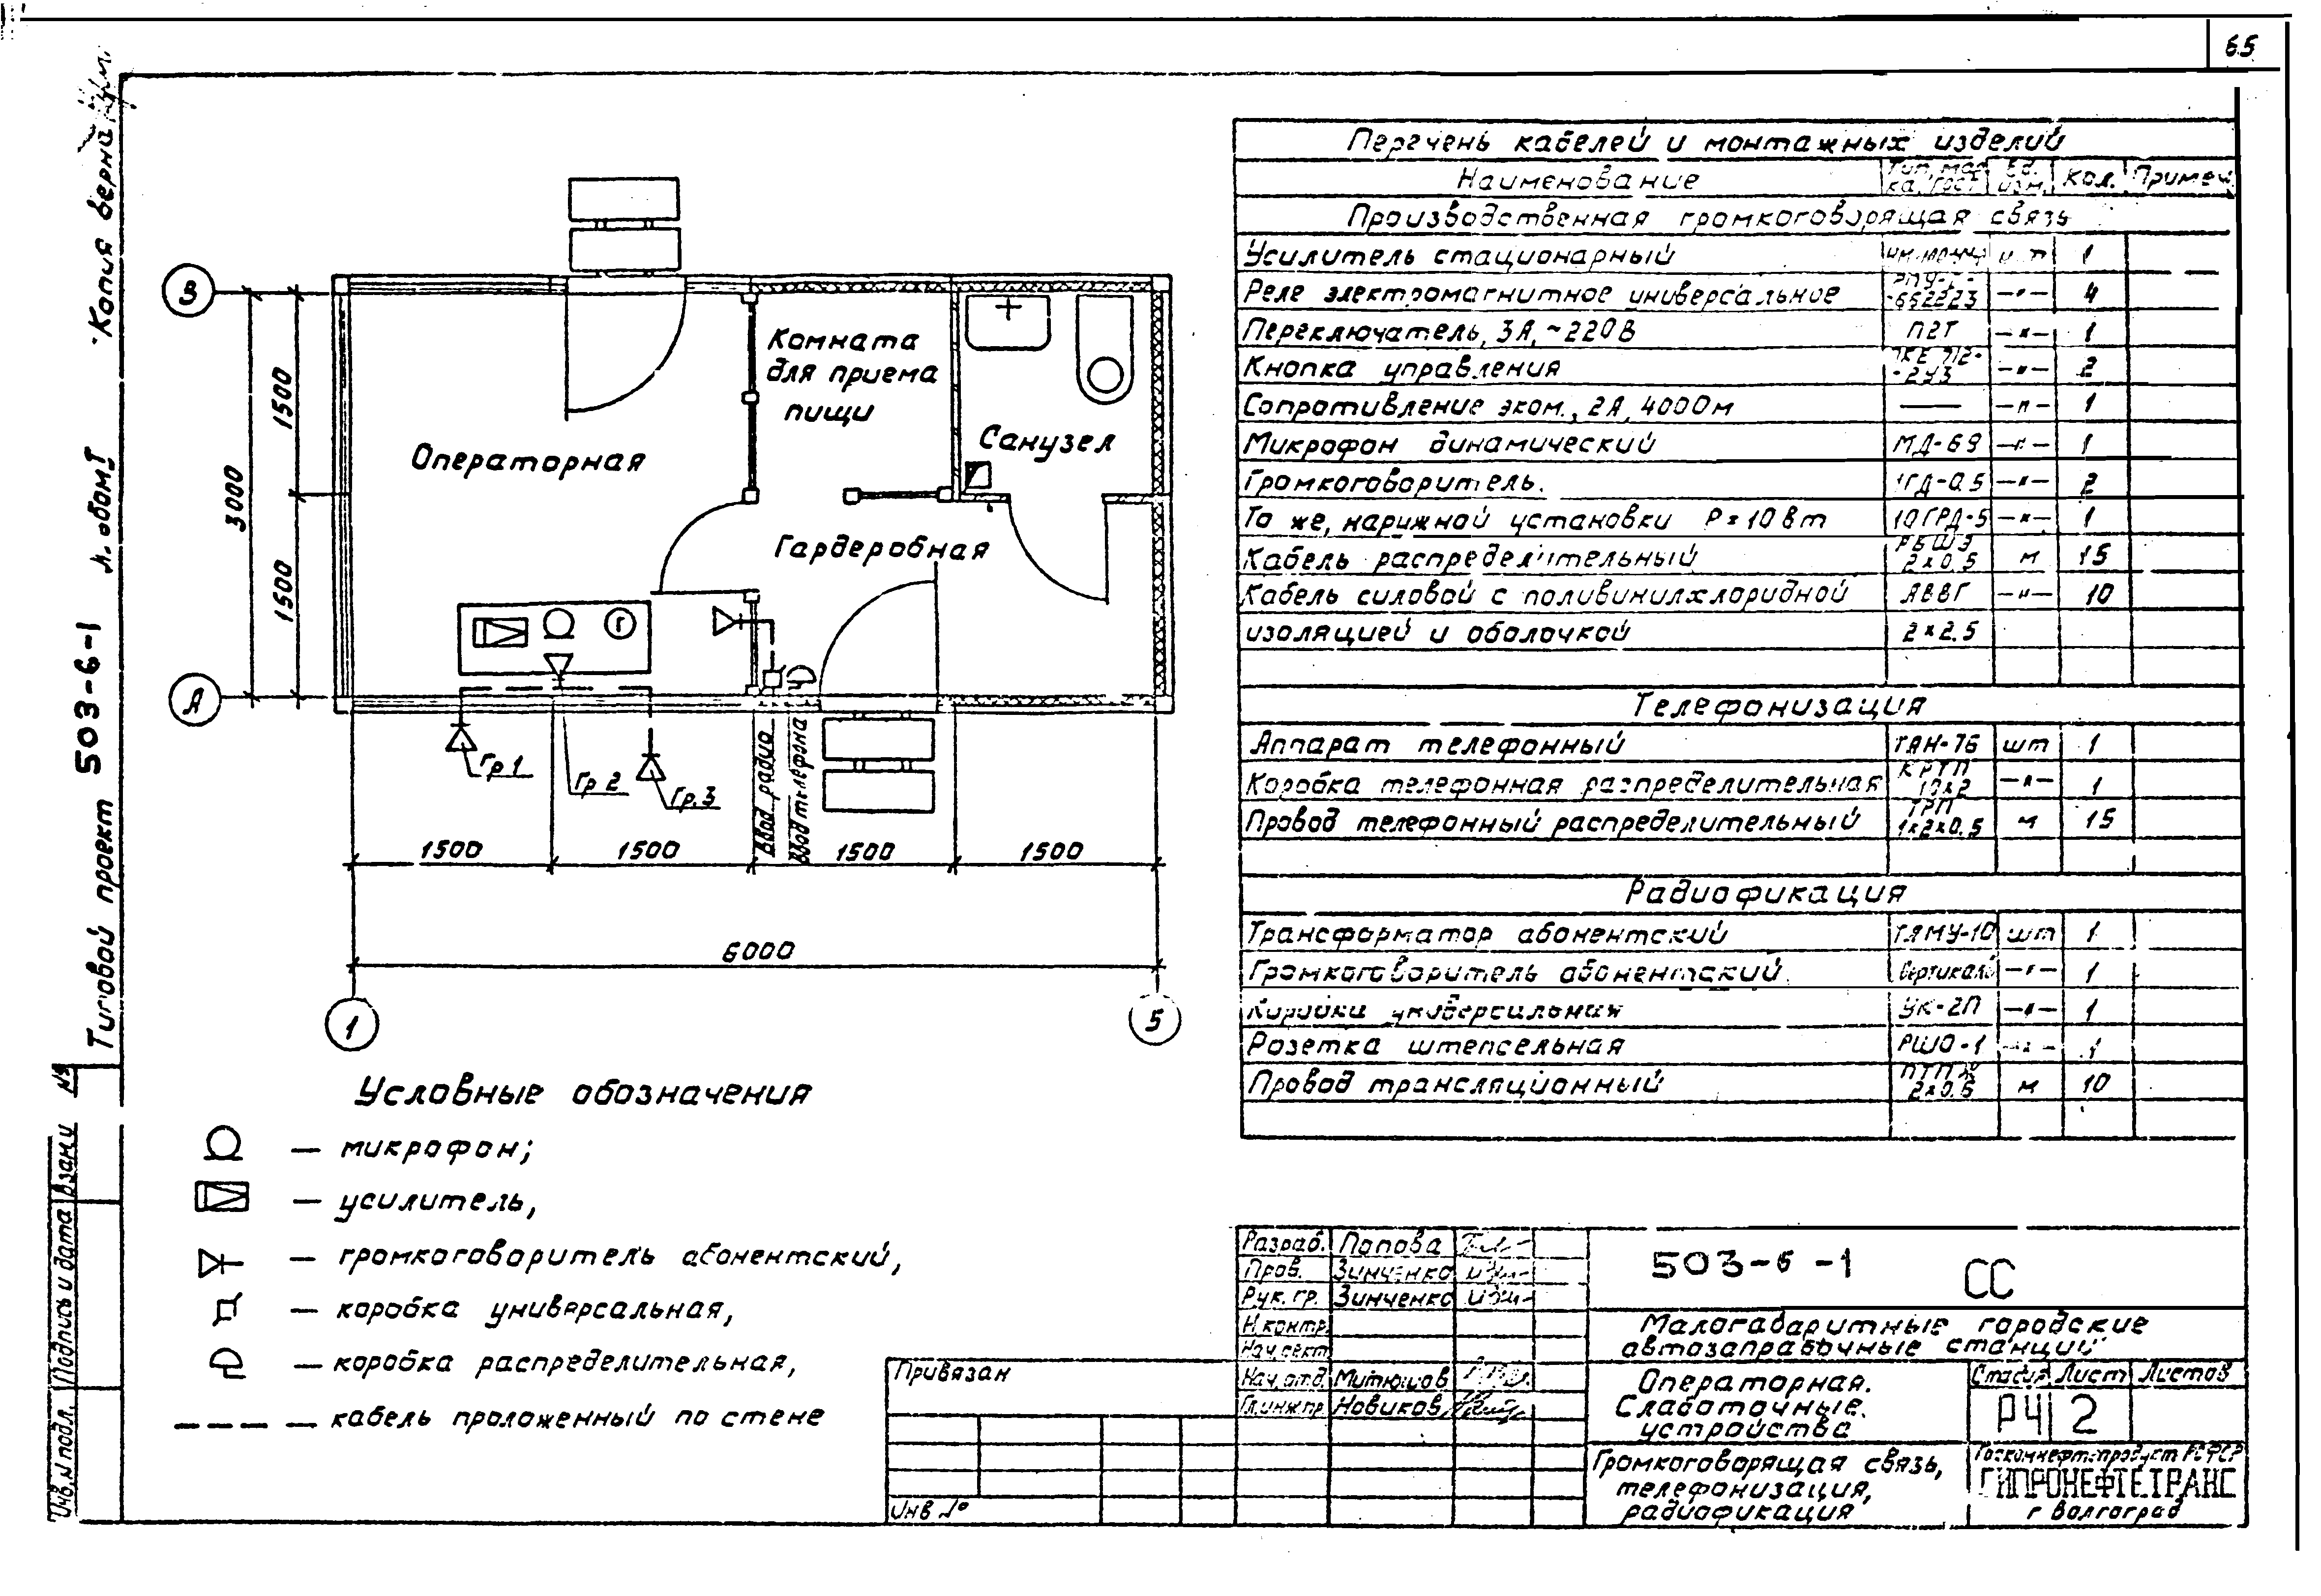 65
Копия верна
Альбом I
Типовой проект 503-6-1
Взам. и №
Подпись и дата
Инв. № подл.
В
А
1500
1500
3000
Операторная
Комната
для приема
пищи
Санузел
Гардеробная
Г
Гр.1
Гр 2
Гр.3
Ввод радио
Ввод телефона
1500
1500
1500
1500
6000
1
5
Условные обозначения
— микрофон;
— усилитель,
— громкоговоритель абонентский,
— коробка универсальная,
— коробка распределительная,
— кабель проложенный по стене
Перечень кабелей и монтажных изделий
Наименование Тип, мар-ка, Гост Ед. изм. Кол. Примеч
Производственная громкоговорящая связь
Усилитель стационарный шт 1
Реле электромагнитное универсальное -652223 —"— 4
Переключатель, 3А, ~220В П2Т —"— 1
Кнопка управления ПКЕ 712-2У3 —"— 2
Сопротивление эком., 2А, 400Ом — —"— 1
Микрофон динамический МД-69 —"— 1
Громкоговоритель. 1ГД-0.5 —"— 2
То же, наружной установки Р=10Вт 10ГРД-5 —"— 1
Кабель распределительный РВШЭ 2×0.5 м 15
Кабель силовой с поливинилхлоридной АВВГ —"— 10
изоляцией и оболочкой 2×2.5
Телефонизация
Аппарат телефонный ТАН-76 шт 1
Коробка телефонная распределительная КРТП 10×2 —"— 1
Провод телефонный распределительный ТРП 1×2×0.5 м 15
Радиофикация
Трансформатор абонентский ТАМУ-10 шт 1
Громкоговоритель абонентский. —"— 1
Коробка универсальная УК-2П —"— 1
Розетка штепсельная РШО-1 —"— 1
Провод трансляционный ПТПЖ 2×0.6 м 10
Разраб. Попова
Пров. Зинченко
Рук. гр. Зинченко
Н.контр.
Нач. сект
Нач. отд. Митюшов
Гл.инж.пр. Новиков
Привязан
Инв №
503-6-1 СС
Малогабаритные городские
автозаправочные станции
Операторная.
Слаботочные
устройства
Стадия Лист Листов
РЧ 2
Громкоговорящая связь,
телефонизация,
радиофикация
Госкомнефтепродукт РСФСР
ГИПРОНЕФТЕТРАНС
г Волгоград